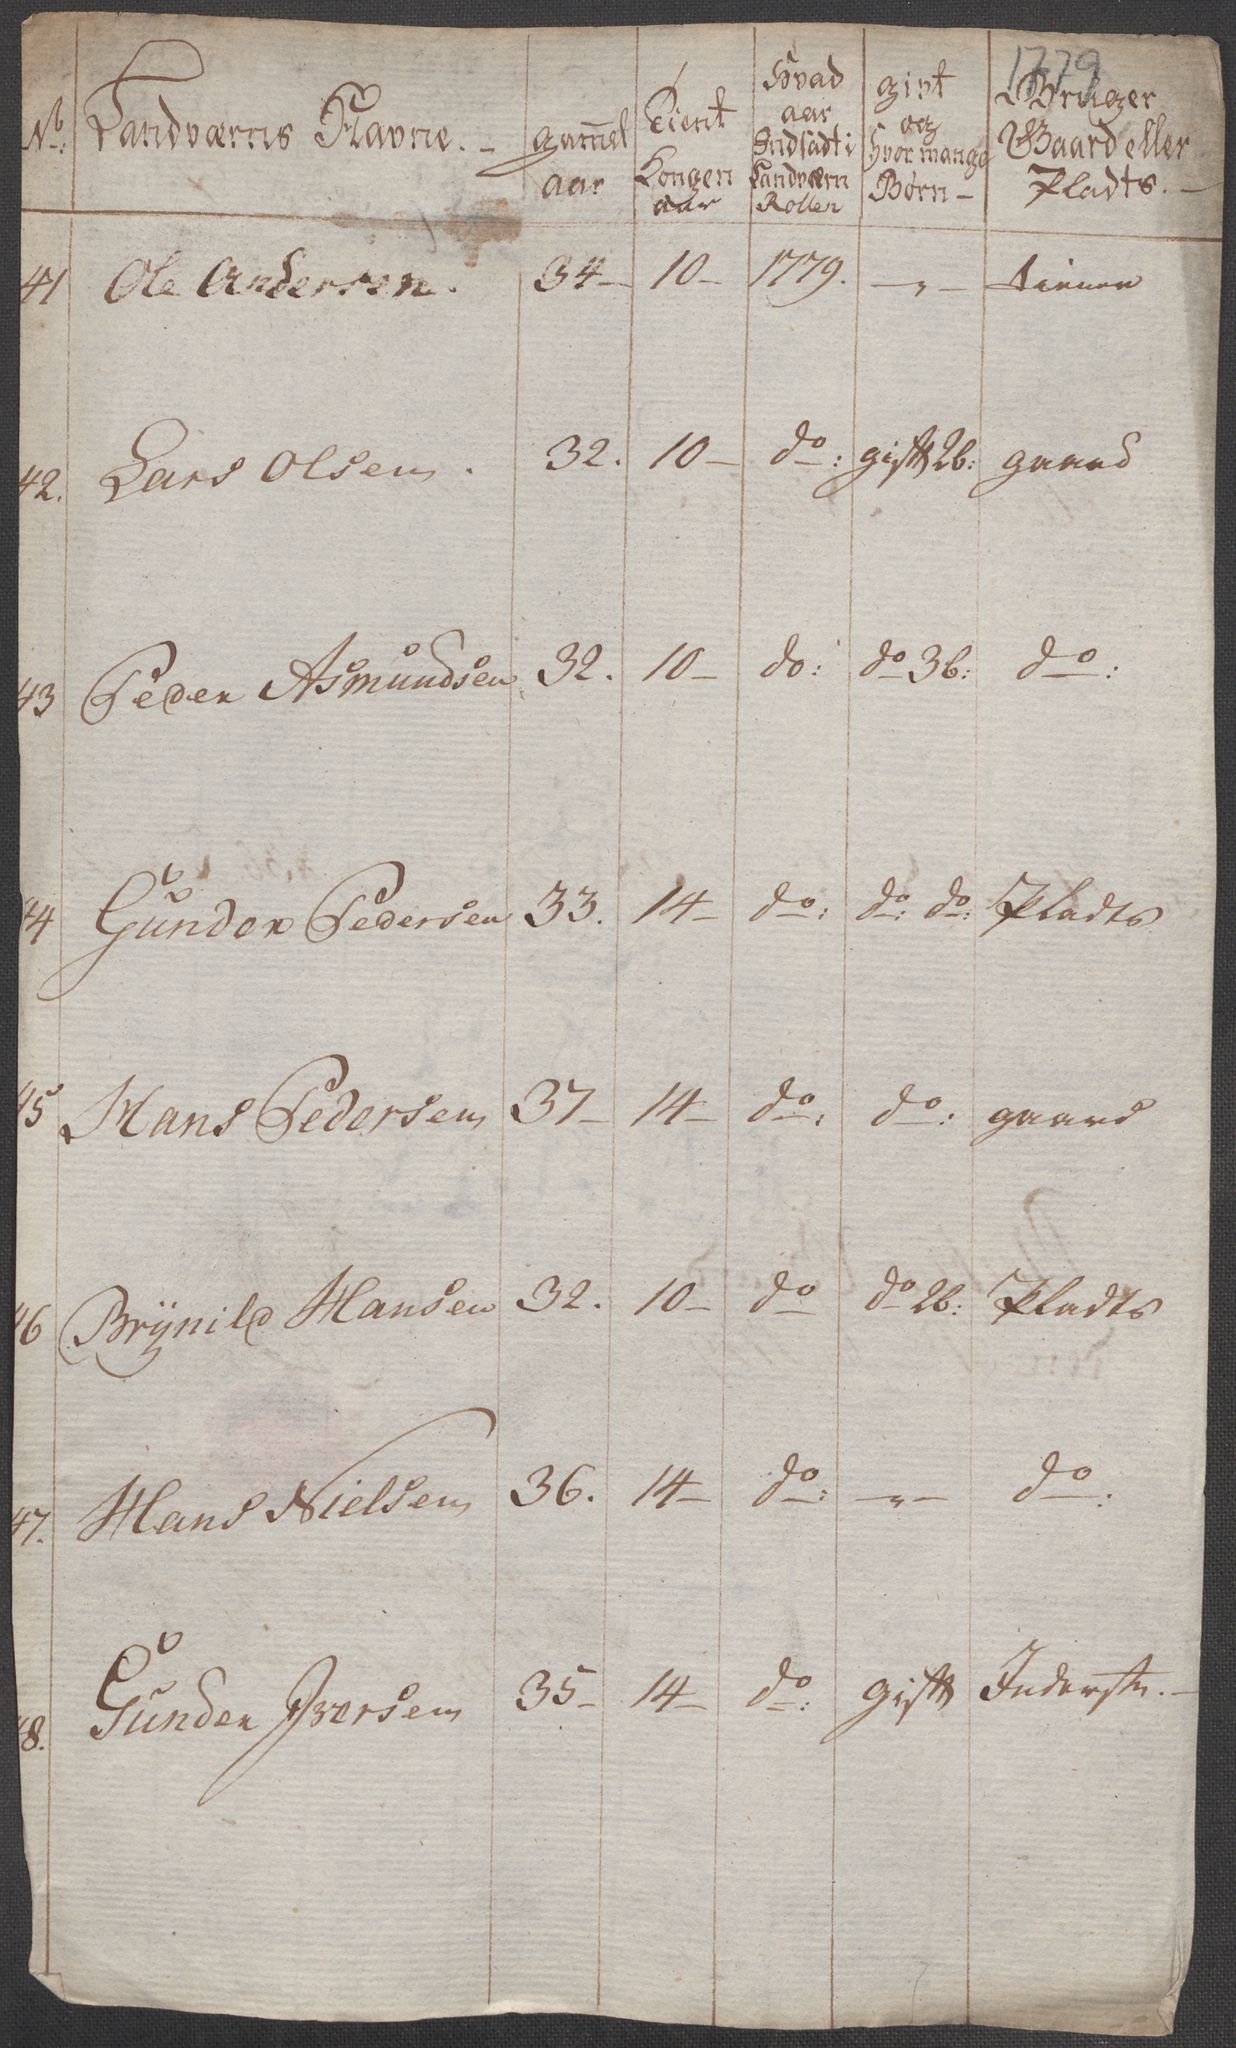 1779
No: Landværns Navne. - gammel aar Tient Kongen aar Hvad aar Indsadt i Landværn Rollen givt og hvor mange Børn - Bruger Gaard eller Pladts. -
41 Ole Andersen. 34 - 10 - 1779. - " - tiener
42. Lars Olsen. 32. 10 - do: gift 2b: gaard
43 Peder Asmundsen 32. 10 - do: do 3b: do:
44 Gunder Pedersen 33. 14 - do: do: do: Pladts
45 Hans Pedersen 37 - 14 - do: do: gaard
46 Brÿnild Hansen 32. 10 - do do 2b: Pladts
47. Hans Nielsen 36. 14 - do: - " - do:
48. Gunder Iversen 35 - 14 - do: gift Inderst. -